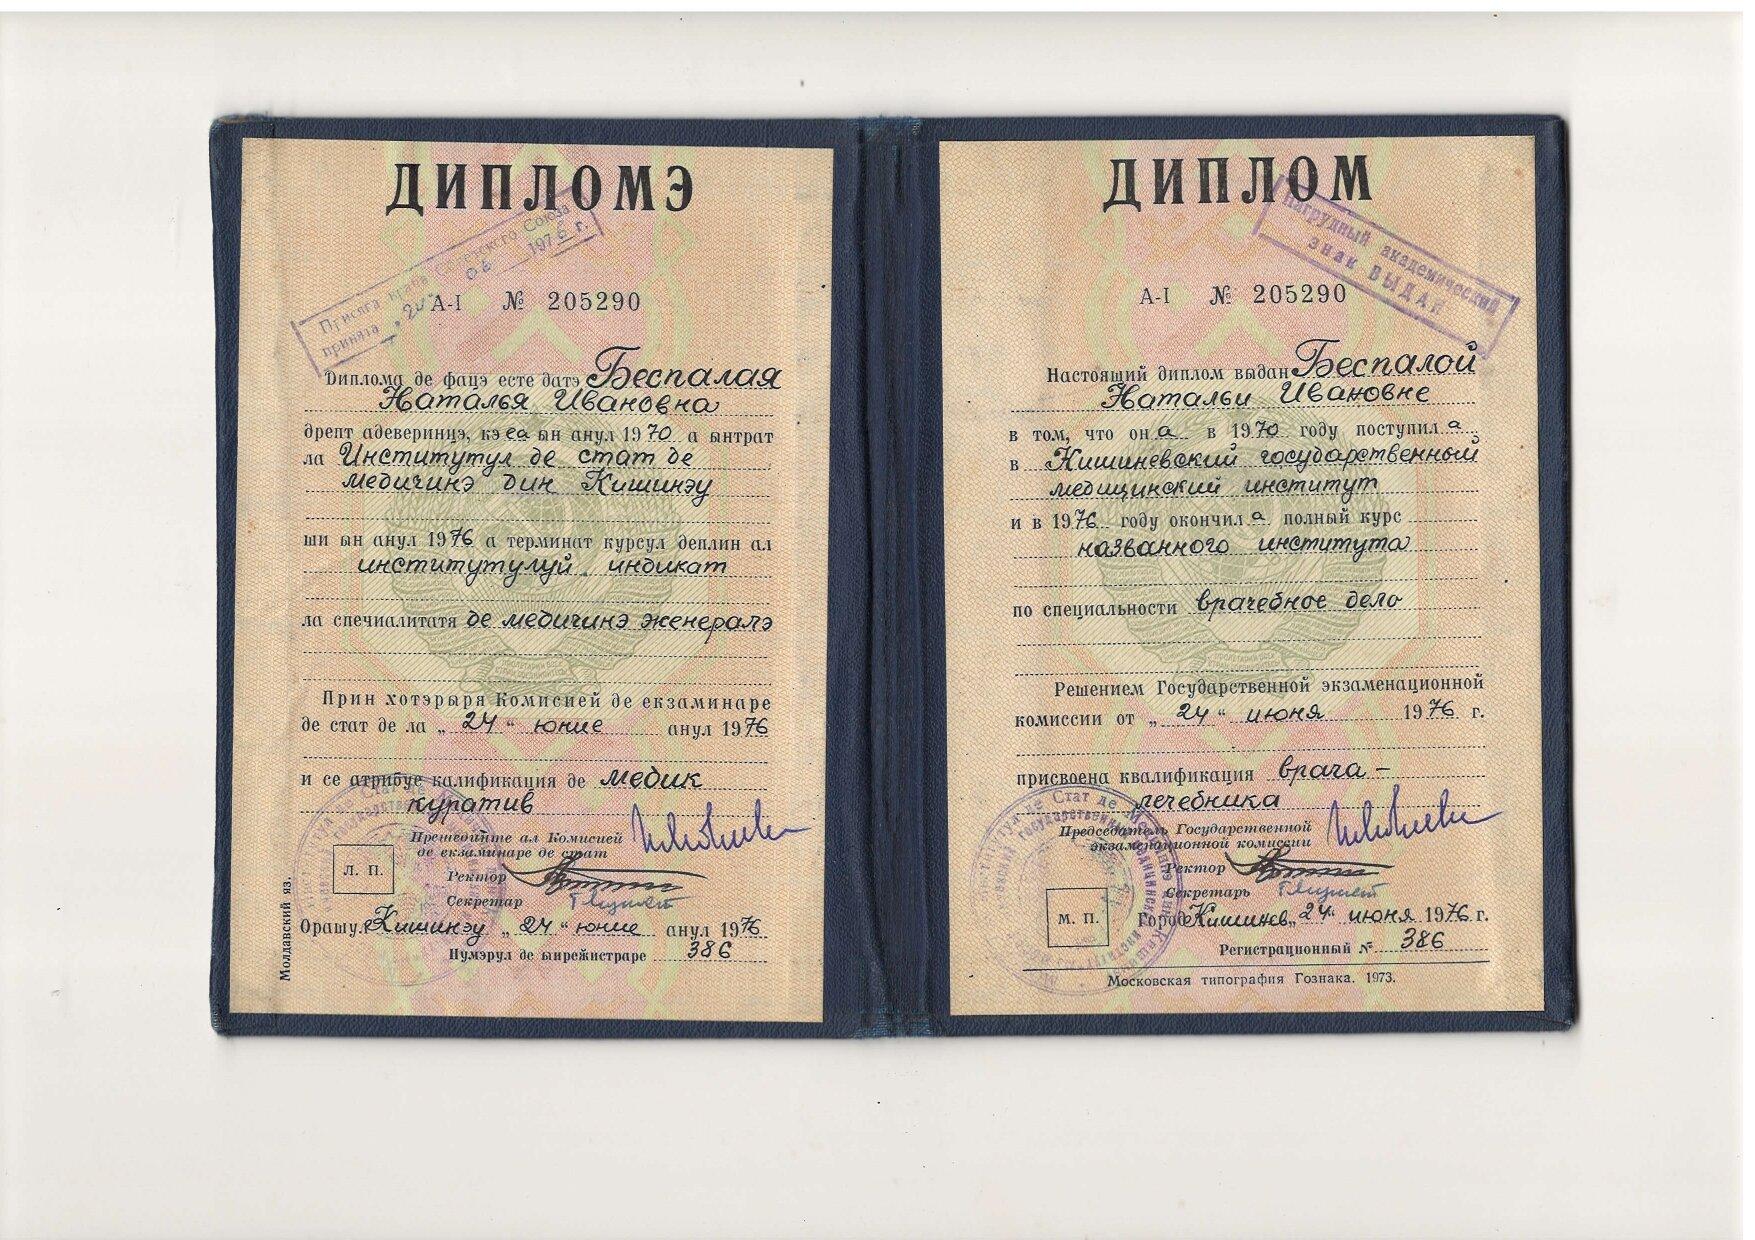 ДИПЛОМЭ
Присяга врача Советского Союза
принята „24" 06 1976 г.
А-I № 205290
Диплома де фацэ есте датэ Беспалая
Наталья Ивановна
дрепт адеверинцэ, кэ еа ын анул 1970 а ынтрат
ла Институтул де стат де
медичинэ дин Кишинэу
ши ын анул 1976 а терминат курсул деплин ал
институтулуй индикат
ла спечиалитатя де медичинэ женералэ
Прин хотэрыря Комисией де екзаминаре
де стат де ла „24" юние анул 1976
и се атрибуе калификация де медик
куратив
Прешединте ал Комисией
де екзаминаре де стат
Л. П.
Ректор
Секретар
Орашул Кишинэу „24" юние анул 1976
Нумэрул де ынрежистраре 386
Молдавский яз.
ДИПЛОМ
Нагрудный академический
знак ВЫДАН
А-I № 205290
Настоящий диплом выдан Беспалой
Натальи Ивановне
в том, что она в 1970 году поступила
в Кишиневский государственный
медицинский институт
и в 1976 году окончила полный курс
названного института
по специальности врачебное дело
Решением Государственной экзаменационной
комиссии от „24" июня 1976 г.
присвоена квалификация врача-
лечебника
Председатель Государственной
экзаменационной комиссии
Ректор
Секретарь
М. П.
Город Кишинев „24" июня 1976 г.
Регистрационный № 386
Московская типография Гознака. 1973.